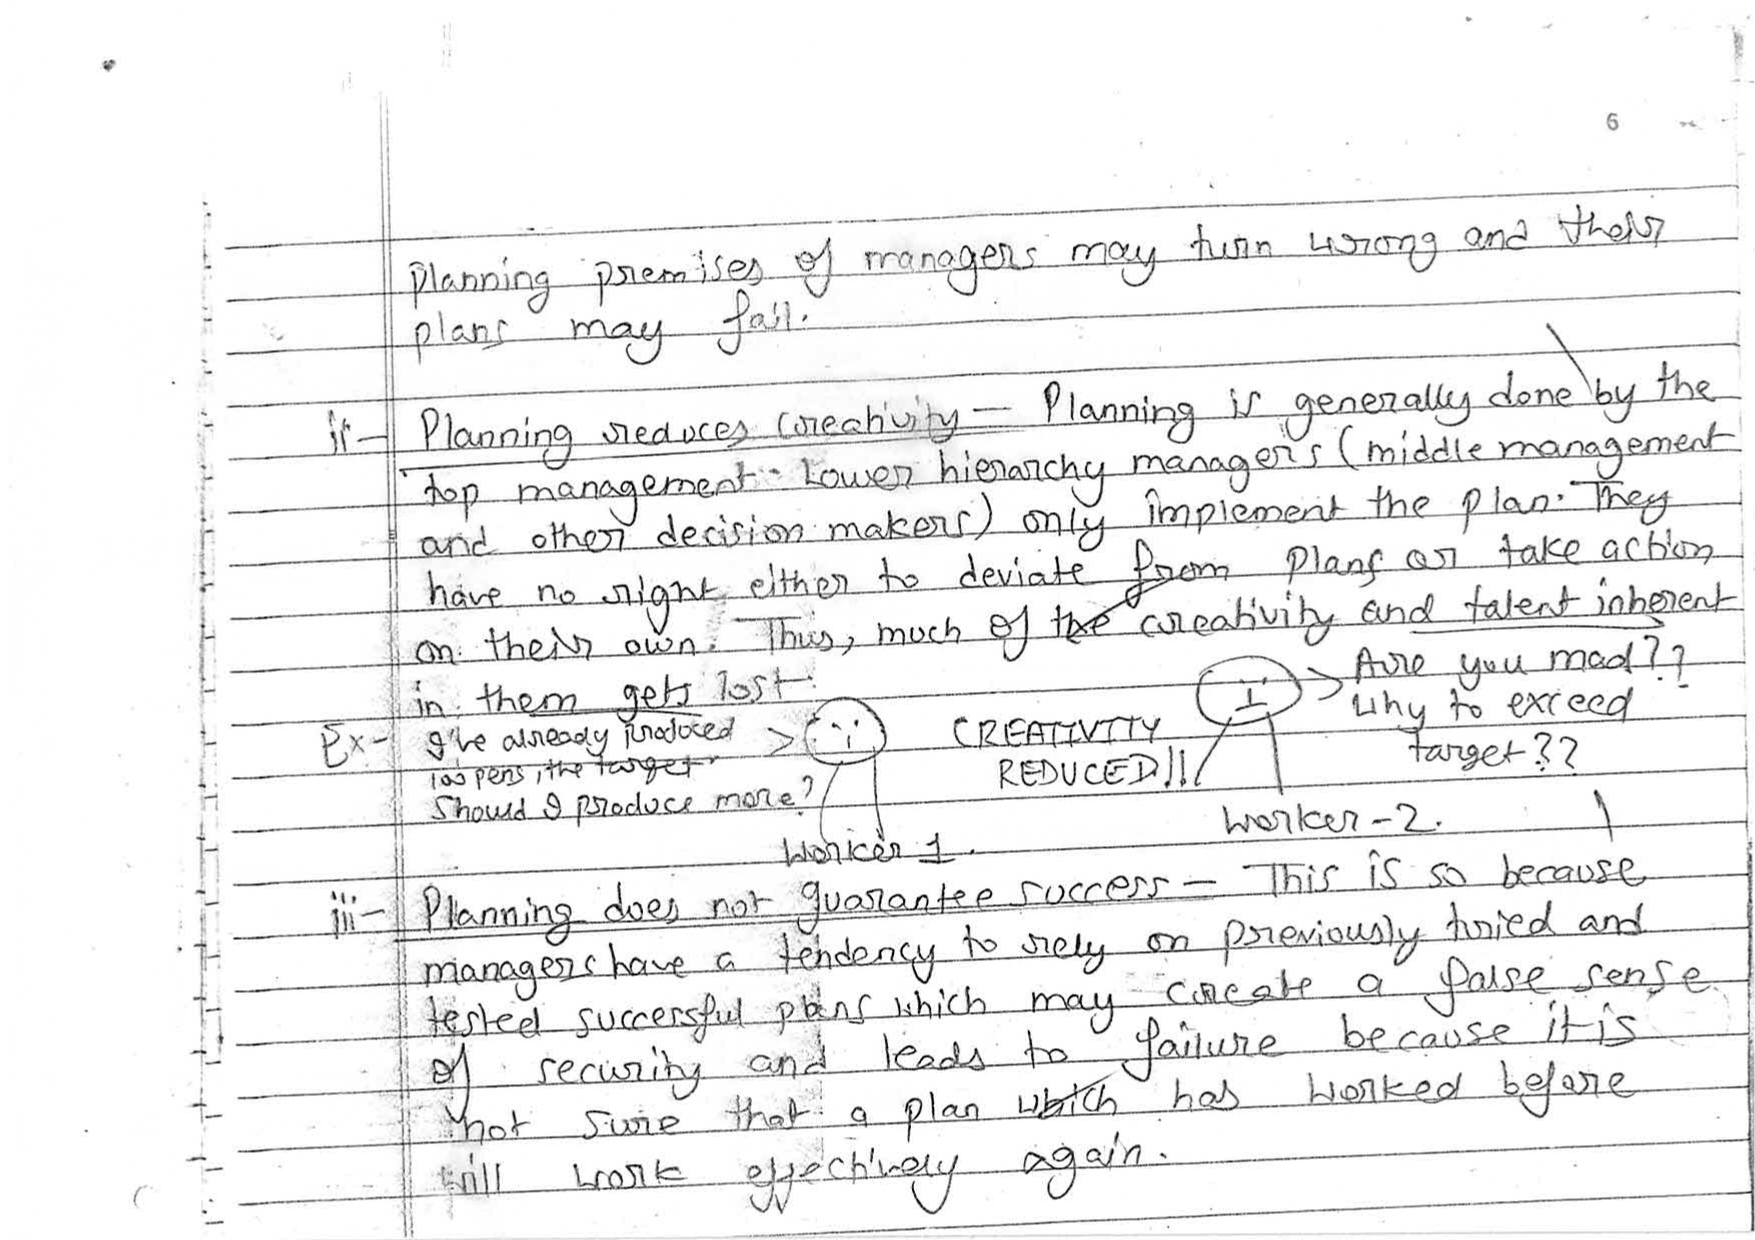 6
planning premises of managers may turn wrong and their
plans may fail.
ii- Planning reduces creativity — Planning is generally done by the
top management. Lower hierarchy managers (middle management
and other decision makers) only implement the plan. They
have no right either to deviate from plans or take action
on their own. Thus, much of the creativity and talent inherent
in them gets lost.
Ex- I've already produced
100 pens, the target.
Should I produce more?
Worker 1.
CREATIVITY
REDUCED!!!
Are you mad??
Why to exceed
target??
Worker-2.
iii- Planning does not guarantee success — This is so because
managers have a tendency to rely on previously tried and
tested successful plans which may create a false sense
of security and leads to failure because it is
not sure that a plan which has worked before
will work effectively again.